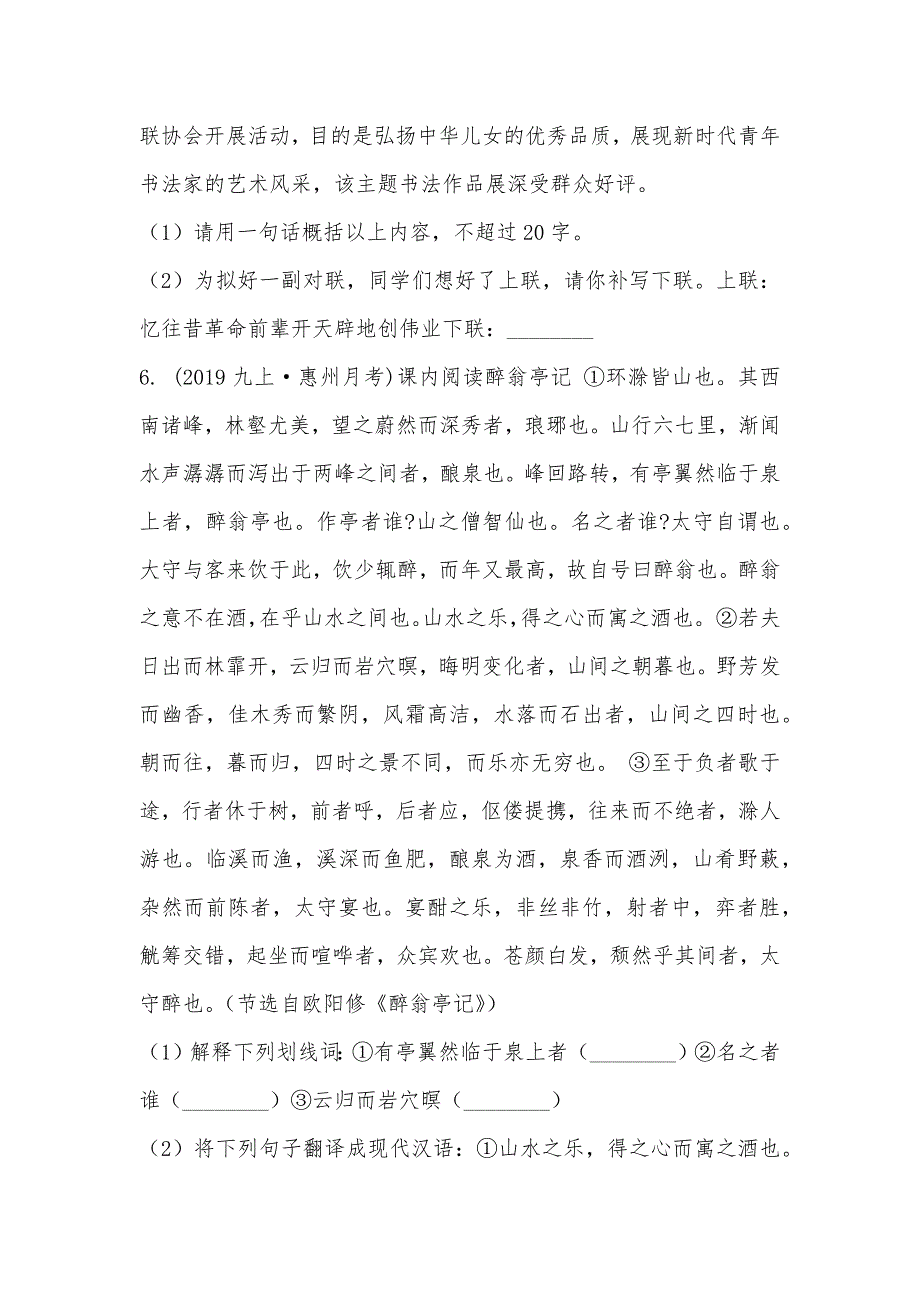 联协会开展活动，目的是弘扬中华儿女的优秀品质，展现新时代青年
书法家的艺术风采，该主题书法作品展深受群众好评。
（1）请用一句话概括以上内容，不超过20字。
（2）为拟好一副对联，同学们想好了上联，请你补写下联。上联：
忆往昔革命前辈开天辟地创伟业下联：________
6. (2019九上·惠州月考)课内阅读醉翁亭记 ①环滁皆山也。其西
南诸峰，林壑尤美，望之蔚然而深秀者，琅琊也。山行六七里，渐闻
水声潺潺而泻出于两峰之间者，酿泉也。峰回路转，有亭翼然临于泉
上者，醉翁亭也。作亭者谁?山之僧智仙也。名之者谁?太守自谓也。
大守与客来饮于此，饮少辄醉，而年又最高，故自号曰醉翁也。醉翁
之意不在酒，在乎山水之间也。山水之乐，得之心而寓之酒也。②若夫
日出而林霏开，云归而岩穴暝，晦明变化者，山间之朝暮也。野芳发
而幽香，佳木秀而繁阴，风霜高洁，水落而石出者，山间之四时也。
朝而往，暮而归，四时之景不同，而乐亦无穷也。 ③至于负者歌于
途，行者休于树，前者呼，后者应，伛偻提携，往来而不绝者，滁人
游也。临溪而渔，溪深而鱼肥，酿泉为酒，泉香而酒洌，山肴野蔌，
杂然而前陈者，太守宴也。宴酣之乐，非丝非竹，射者中，弈者胜，
觥筹交错，起坐而喧哗者，众宾欢也。苍颜白发，颓然乎其间者，太
守醉也。（节选自欧阳修《醉翁亭记》）
（1）解释下列划线词：①有亭翼然临于泉上者（________）②名之者
谁（________）③云归而岩穴暝（________）
（2）将下列句子翻译成现代汉语：①山水之乐，得之心而寓之酒也。